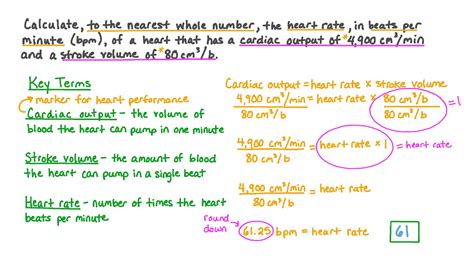 Calculate, to the nearest whole number, the heart rate, in beats per
minute (bpm), of a heart that has a cardiac output of *4,900 cm³/min
and a stroke volume of *80 cm³/b.
Key Terms
*marker for heart performance
Cardiac output - the volume of
blood the heart can pump in one minute
Stroke volume - the amount of blood
the heart can pump in a single beat
Heart rate - number of times the heart
beats per minute
Cardiac output = heart rate × stroke volume
4,900 cm³/min = heart rate × 80 cm³/b
80 cm³/b 80 cm³/b
=1
4,900 cm³/min = heart rate × 1 = heart rate
80 cm³/b
4,900 cm³/min = heart rate
80 cm³/b
round
down
61.25 bpm = heart rate
61